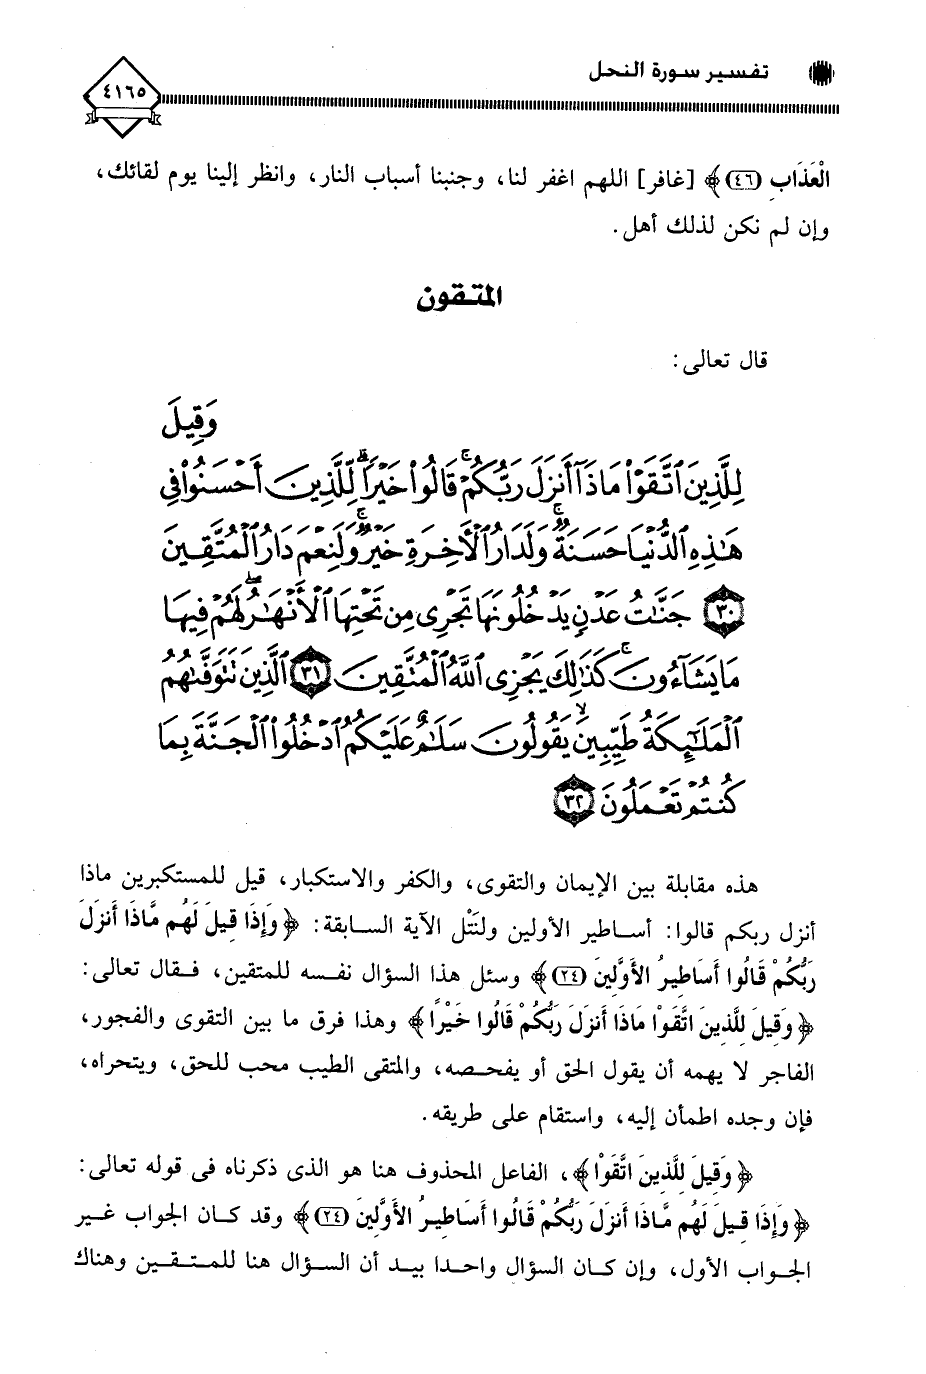 تفسير سورة النحل
٤١٦٥
الْعَذَابِ (٤٦)﴾ [غافر] اللهم اغفر لنا، وجنبنا أسباب النار، وانظر إلينا يوم لقائك،
وإن لم نكن لذلك أهل.
المتقون
قال تعالى:
وَقِيلَ
لِلَّذِينَ ٱتَّقَوْا۟ مَاذَآ أَنزَلَ رَبُّكُمْ ۚ قَالُوا۟ خَيْرًا ۗ لِّلَّذِينَ أَحْسَنُوا۟ فِى
هَـٰذِهِ ٱلدُّنْيَا حَسَنَةٌ ۚ وَلَدَارُ ٱلْـَٔاخِرَةِ خَيْرٌ ۚ وَلَنِعْمَ دَارُ ٱلْمُتَّقِينَ
٣٠ جَنَّـٰتُ عَدْنٍ يَدْخُلُونَهَا تَجْرِى مِن تَحْتِهَا ٱلْأَنْهَـٰرُ ۖ لَهُمْ فِيهَا
مَا يَشَآءُونَ ۚ كَذَٰلِكَ يَجْزِى ٱللَّهُ ٱلْمُتَّقِينَ ٣١ ٱلَّذِينَ تَتَوَفَّىٰهُمُ
ٱلْمَلَـٰٓئِكَةُ طَيِّبِينَ ۙ يَقُولُونَ سَلَـٰمٌ عَلَيْكُمُ ٱدْخُلُوا۟ ٱلْجَنَّةَ بِمَا
كُنتُمْ تَعْمَلُونَ ٣٢
هذه مقابلة بين الإيمان والتقوى، والكفر والاستكبار، قيل للمستكبرين ماذا
أنزل ربكم قالوا: أساطير الأولين ولنَتْل الآية السابقة: ﴿وَإِذَا قِيلَ لَهُم مَّاذَا أَنزَلَ
رَبُّكُمْ قَالُوا أَسَاطِيرُ الأَوَّلِينَ (٢٤)﴾ وسئل هذا السؤال نفسه للمتقين، فقال تعالى:
﴿وَقِيلَ لِلَّذِينَ اتَّقَوْا مَاذَا أَنزَلَ رَبُّكُمْ قَالُوا خَيْرًا﴾ وهذا فرق ما بين التقوى والفجور،
الفاجر لا يهمه أن يقول الحق أو يفحصه، والمتقى الطيب محب للحق، ويتحراه،
فإن وجده اطمأن إليه، واستقام على طريقه.
﴿وَقِيلَ لِلَّذِينَ اتَّقَوْا﴾، الفاعل المحذوف هنا هو الذى ذكرناه فى قوله تعالى:
﴿وَإِذَا قِيلَ لَهُم مَّاذَا أَنزَلَ رَبُّكُمْ قَالُوا أَسَاطِيرُ الأَوَّلِينَ (٢٤)﴾ وقد كان الجواب غير
الجواب الأول، وإن كان السؤال واحدا بيد أن السؤال هنا للمتقين وهناك